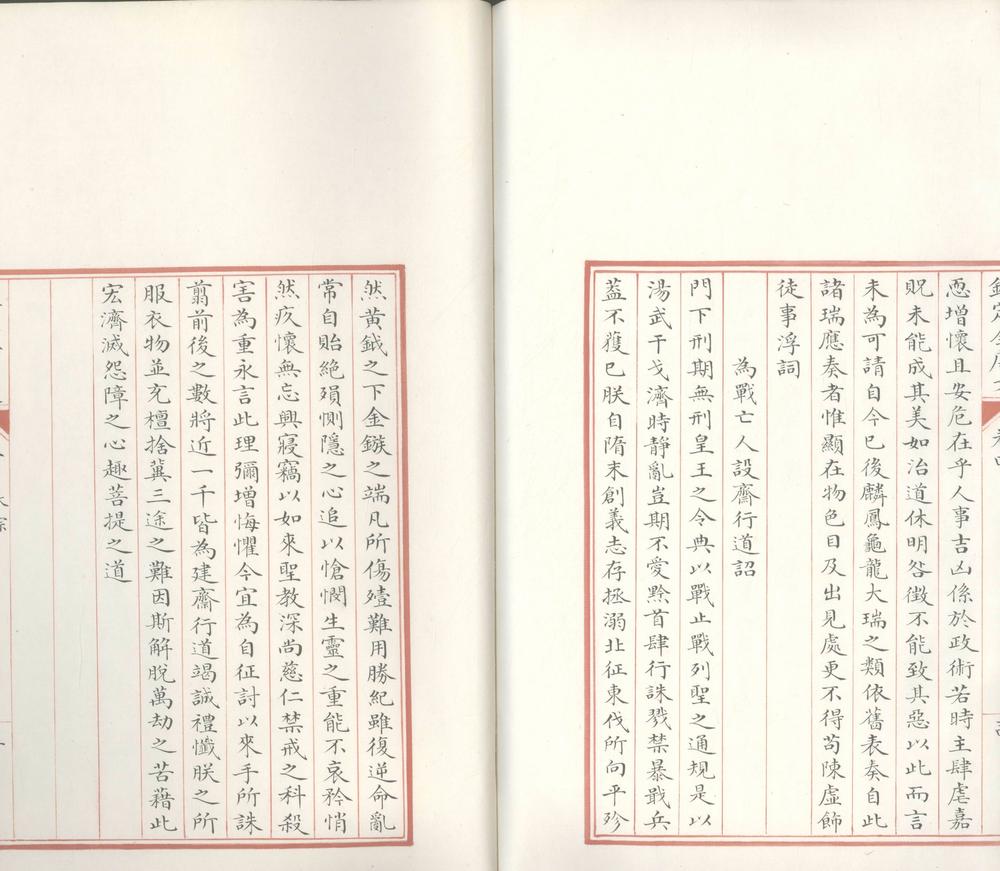 恧增懷且安危在乎人事吉凶係於政術若時主肆虐嘉
貺未能成其美如治道休明咎徵不能致其惡以此而言
未為可請自今已後麟鳳龜龍大瑞之類依舊表奏自此
諸瑞應奏者惟顯在物色目及出見處更不得苟陳虛飾
徒事浮詞
為戰亡人設齋行道詔
門下刑期無刑皇王之令典以戰止戰列聖之通規是以
湯武干戈濟時靜亂豈期不愛黔首肆行誅戮禁暴戢兵
蓋不獲已朕自隋末創義志存拯溺北征東伐所向平殄
然黃鉞之下金鏃之端凡所傷殪難用勝紀雖復逆命亂
常自貽絕殞惻隱之心追以愴憫生靈之重能不哀矜悄
然疚懷無忘興寢竊以如來聖教深尚慈仁禁戒之科殺
害為重永言此理彌增悔懼今宜為自征討以來手所誅
翦前後之數將近一千皆為建齋行道竭誠禮懺朕之所
服衣物並充檀捨冀三途之難因斯解脫萬劫之苦藉此
宏濟滅怨障之心趣菩提之道